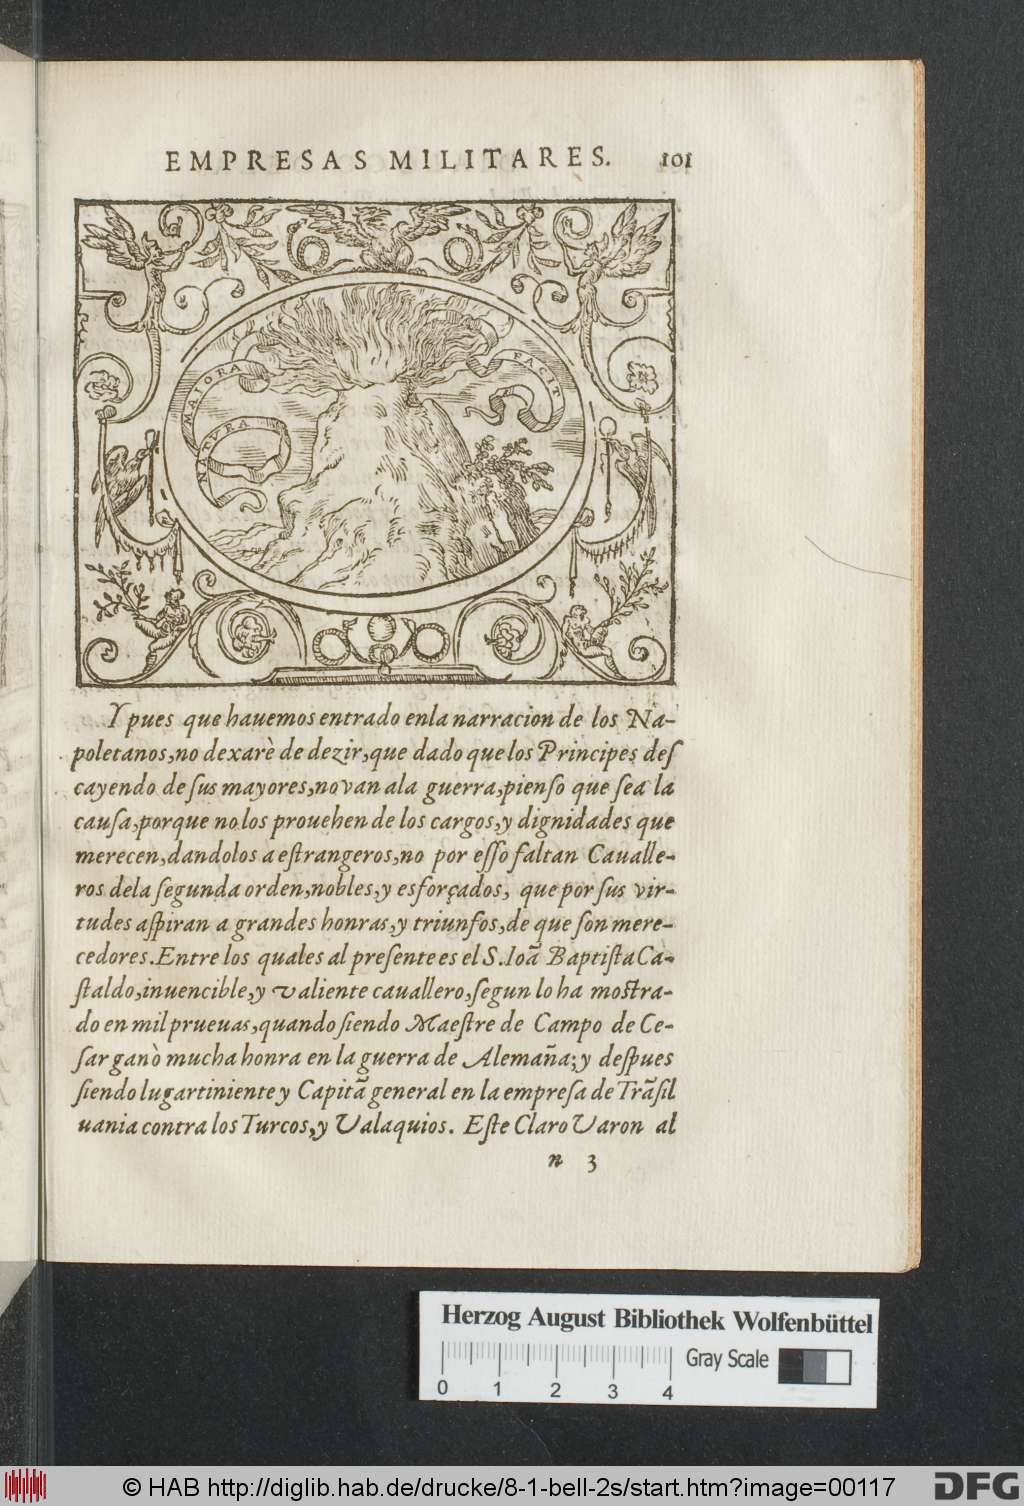 EMPRESAS MILITARES. 101
NATVRA
MAIORA
FACIT
Y pues que hauemos entrado enla narracion de los Na-
poletanos, no dexarè de dezir, que dado que los Principes deſ
cayendo de ſus mayores, no van ala guerra, pienſo que ſea la
cauſa, porque no los prouehen de los cargos, y dignidades que
merecen, dandolos a eſtrangeros, no por eſſo faltan Caualle-
ros dela ſegunda orden, nobles, y esforçados, que por ſus vir-
tudes aſpiran a grandes honras, y triunfos, de que ſon mere-
cedores. Entre los quales al preſente es el S. Ioã Baptiſta Ca-
ſtaldo, inuencible, y valiente cauallero, ſegun lo ha moſtra-
do en mil prueuas, quando ſiendo Maeſtre de Campo de Ce-
ſar ganò mucha honra en la guerra de Alemaña; y deſpues
ſiendo lugartiniente y Capitã general en la empreſa de Trãſil
uania contra los Turcos, y Valaquios. Eſte Claro Varon al
n 3
Herzog August Bibliothek Wolfenbüttel
Gray Scale
0 1 2 3 4
© HAB http://diglib.hab.de/drucke/8-1-bell-2s/start.htm?image=00117
DFG